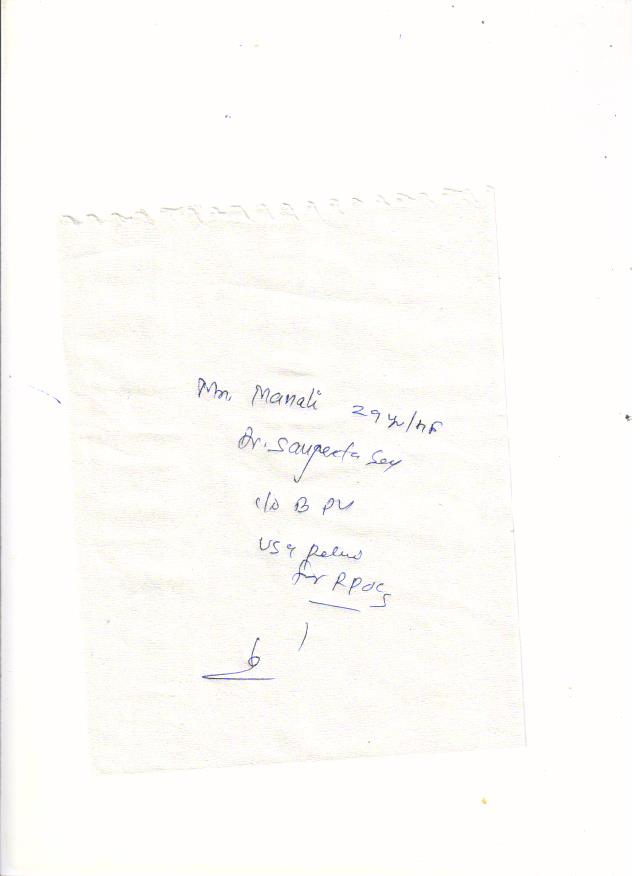 Mrs. Manali 29 yr/F
Dr. Sangeeta
c/o B PV
USG Pelvis
for RPOCs